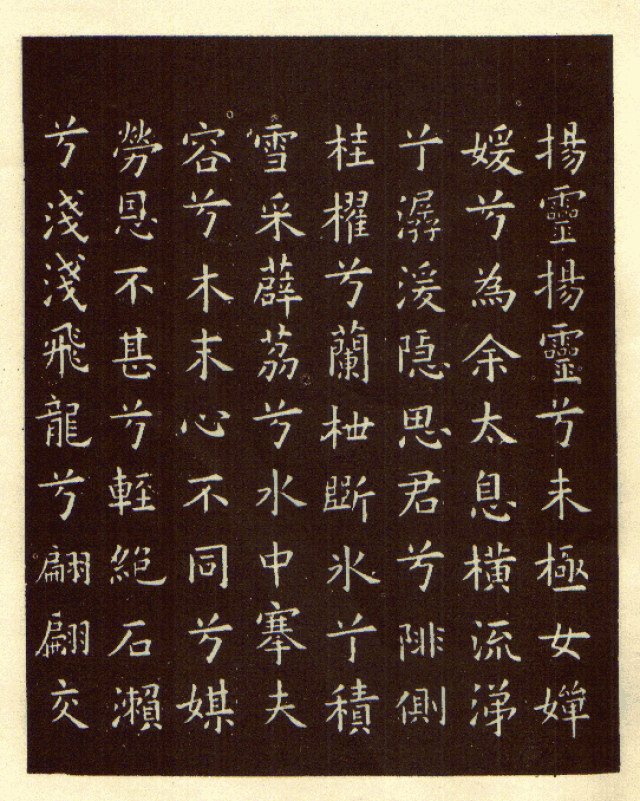 揚靈揚靈兮未極女嬋
媛兮為余太息橫流涕
亍潺湲隠思君兮陫側
桂櫂兮蘭枻斲氷亍積
雪采薜荔兮水中搴夫
容兮木末心不同兮媒
勞恩不甚兮輕絕石瀨
兮淺淺飛龍兮翩翩交